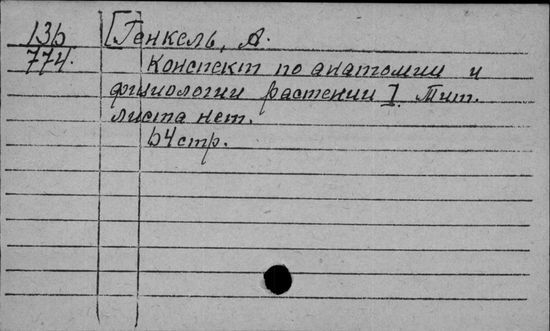 13б [Генкель, А.
774. Конспект по анатомии и
физиологии растений]. Тит.
листа нет.
64 стр.